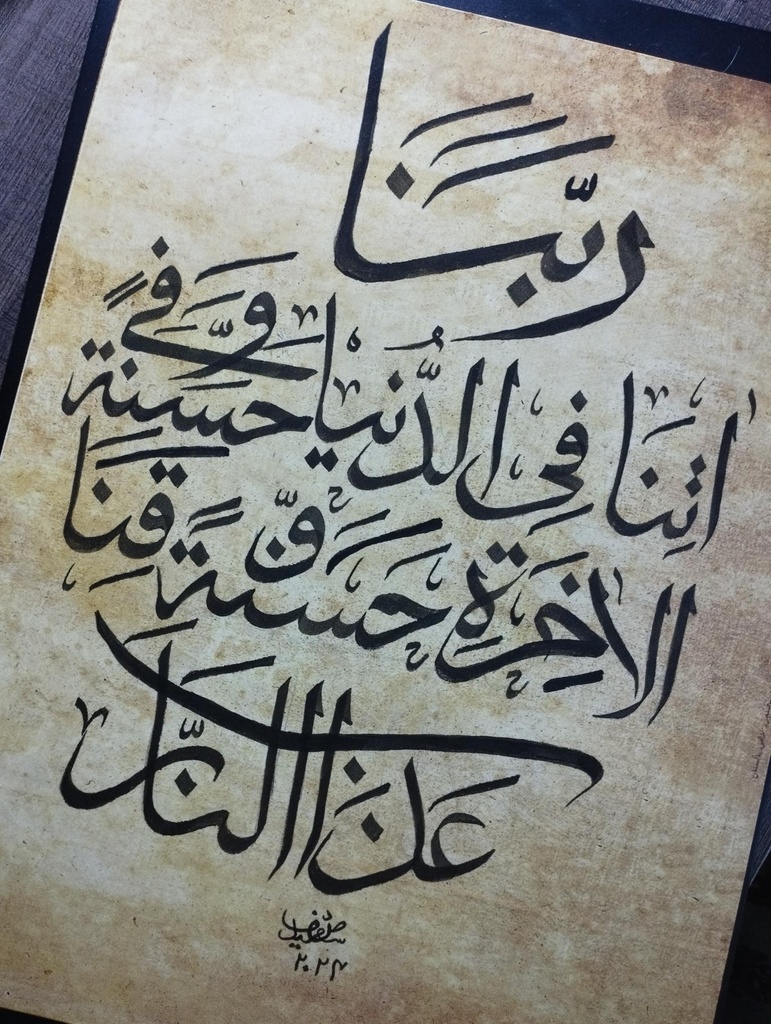 رَبَّنَا
اٰتِنَا فِي الدُّنْيَا حَسَنَةً وَّفِي
الاٰخِرَةِ حَسَنَةً وَّقِنَا
عَذَابَ النَّار
٢٠٢٤